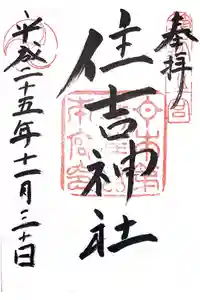 奉拝
住吉神社
平成二十五年十一月三十日